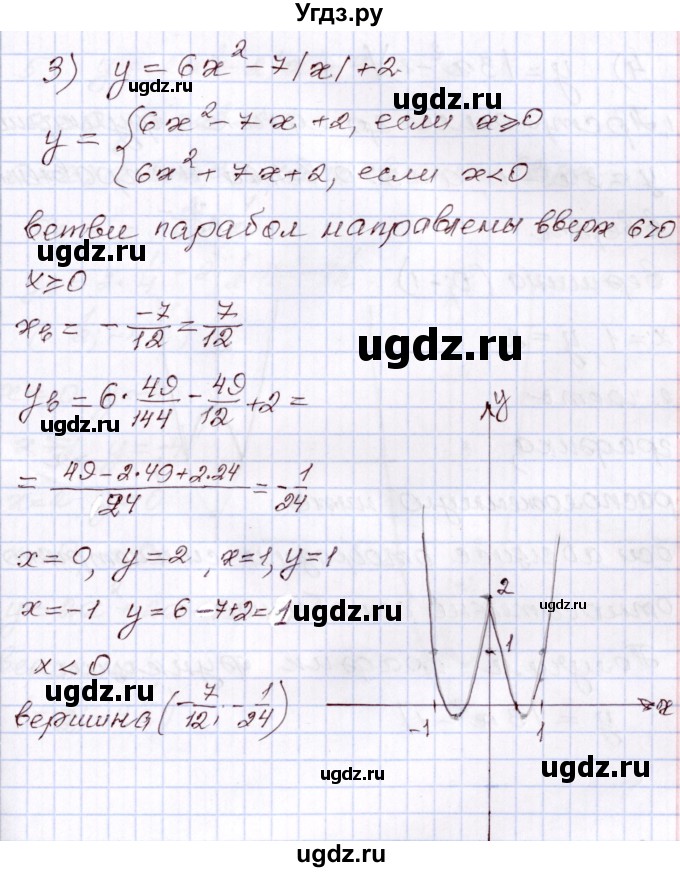 Угдз.ру
3) y = 6x² - 7|x| + 2
y = { 6x² - 7x + 2, если x ≥ 0
6x² + 7x + 2, если x < 0
ветви парабол направлены вверх 6>0
ugdz.ru
x ≥ 0
xв = - -7/12 = 7/12
ugdz.ru
ugdz.ru
yв = 6 · 49/144 - 49/12 + 2 =
ugdz.ru
y
= (49 - 2·49 + 2·24)/24 = - 1/24
ugdz.ru
x = 0, y = 2, x = 1, y = 1
2
ugdz.ru
x = -1 y = 6 - 7 + 2 = 1
ugdz.ru
1
x < 0
вершина (- 7/12; - 1/24)
x
-1
1
ugdz.ru
ugdz.ru
ugdz.ru
ugdz.ru